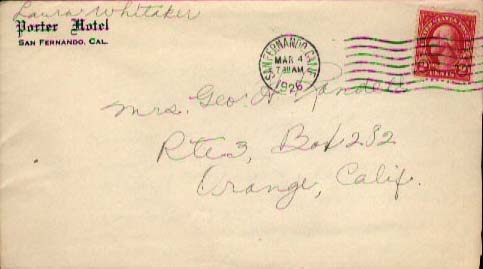 Laura Whitaker
Porter Hotel
SAN FERNANDO, CAL.
SAN FERNANDO, CALIF.
MAR 4
7:30 AM
1926
UNITED STATES POSTAGE
2 CENTS 2
Mrs. Geo. A. Randall
Rte 3, Box 232
Orange, Calif.